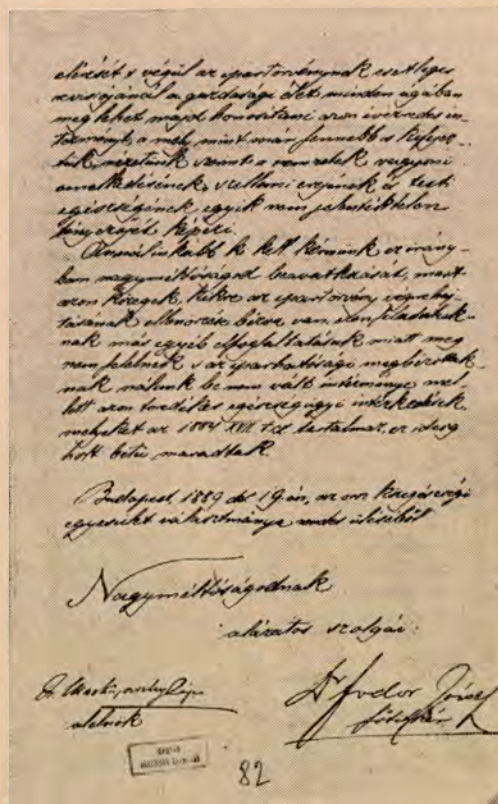 elérését s végül az ipartörvénynek esetleges
revisiójánál a gazdasági élet minden ágában
meg lehet majd honosítani azon üdvözdés in-
tézményt, a mely, mint már fennebb is kifejez-
tük, nézetünk szerint a nemzetek vagyoni
emelkedésének, szellemi erejének és testi
egészségének egyik nem jelentéktelen
tényezőjét képezi.
Annál inkább ki kell kérnünk ez irány-
ban nagyméltóságod beavatkozását, mert
azon közegek, kikre az ipartörvény végrehaj-
tásának ellenőrzése bízva van, ezen feladatuk-
nak más egyéb elfoglaltatásuk miatt meg
nem felelnek s az iparhatósági megbízottak-
nak nálunk be nem vált intézménye mel-
lett azon üdvös egészségügyi intézkedések,
melyeket az 1884 XVII. t.cz. tartalmaz, ez ideig
holt betű maradtak.
Budapest, 1889 19-én, az orsz. közegészségi
egyesület választmánya rendes üléséből
Nagyméltóságodnak
alázatos szolgái:
Dr Fodor József
alelnök
főtitkár
82